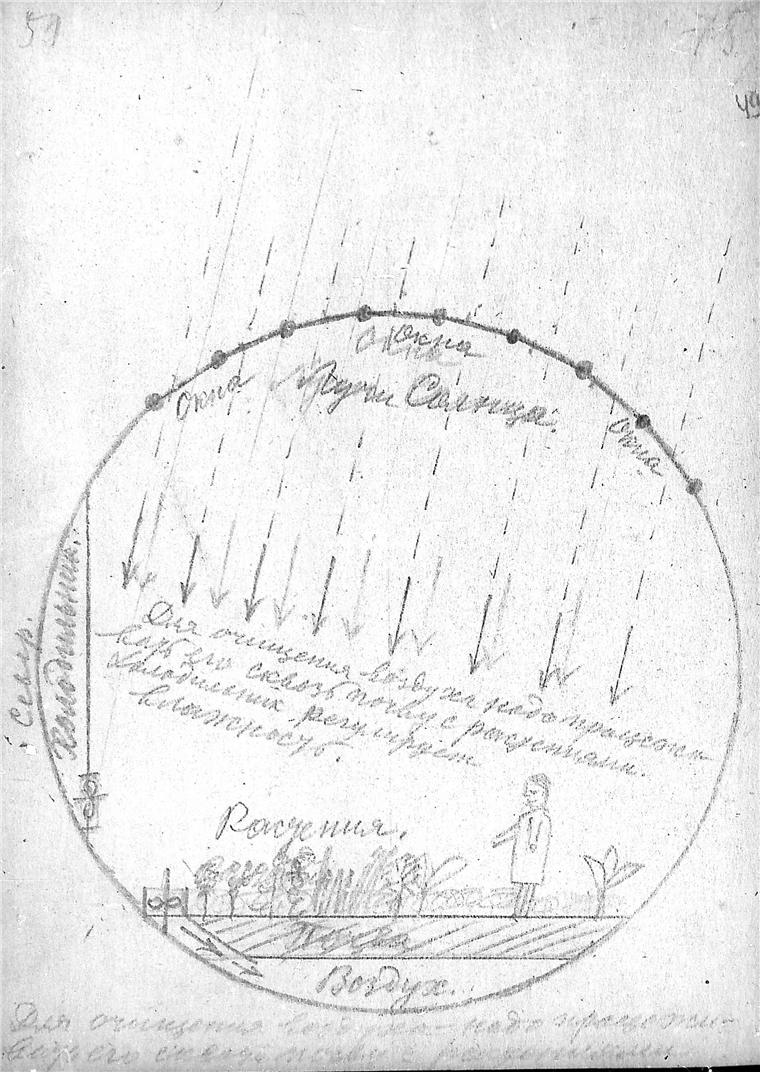 51
75
49
Окна
Окна
Лучи Солнца.
Окна
Север.
Холодильник.
Для очищения воздуха надо процежи-
вать его сквозь почву с растениями.
Холодильник регулирует
влажность.
Растения.
Почва
Воздух.
Для очищения воздуха - надо процежи-
вать его сквозь почву с растениями